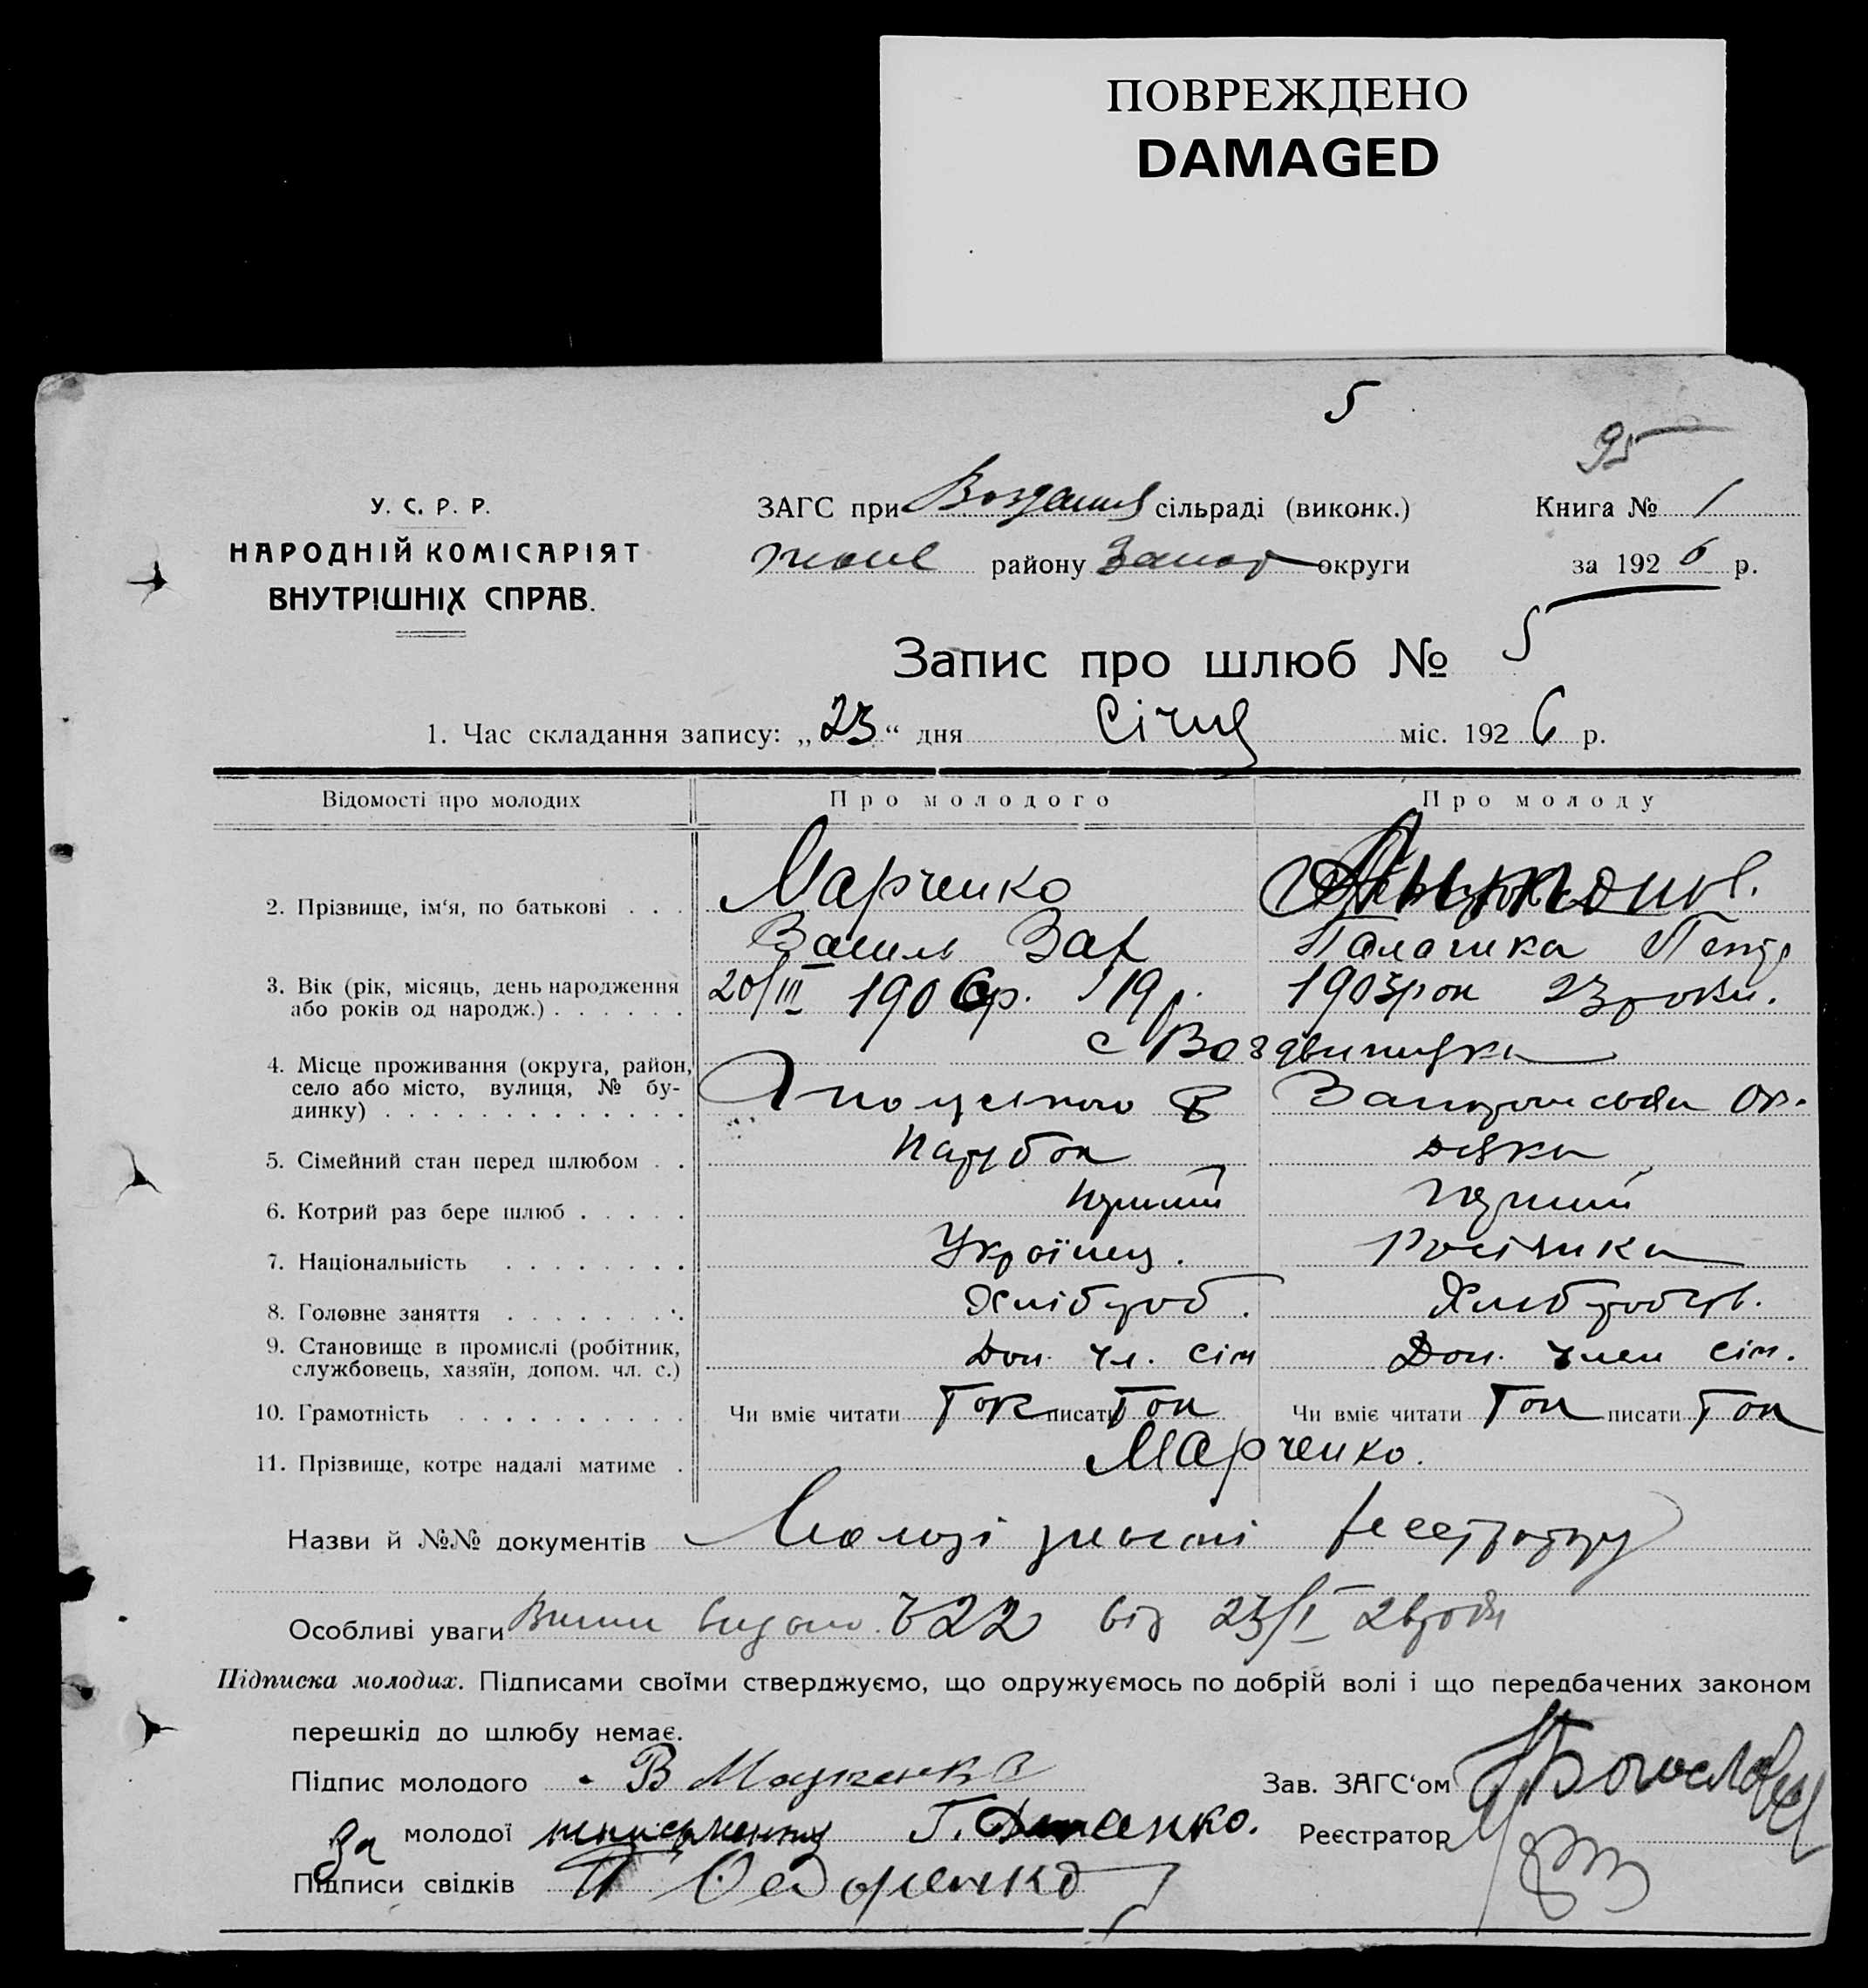 ПОВРЕЖДЕНО
DAMAGED
5
95
У. С. Р. Р.
НАРОДНІЙ КОМІСАРІЯТ
ВНУТРІШНІХ СПРАВ.
ЗАГС при сільраді (виконк.)
району Запор округи
Книга № 1
за 1926 р.
Запис про шлюб № 5
1. Час складання запису: „23“ дня Січня міс. 1926 р.
Відомості про молодих Про молодого Про молоду
2. Прізвище, ім‘я, по батькові . . . Марченко
Василь Зах Палагика Петр
3. Вік (рік, місяць, день народження
або років од народж.) . . . . . . 20/III 1906р. 19 р. 1903 рок 23 роки.
с Воздвиженка
4. Місце проживання (округа, район,
село або місто, вулиця, № бу-
динку) . . . . . . . . . . . . . Запорижськи Ок.
5. Сімейний стан перед шлюбом . . Парубок Дівка
6. Котрий раз бере шлюб . . . . . Перший Перший
7. Національність . . . . . . . . Українец. Росіянка
8. Головне заняття . . . . . . . . Хлібороб. Хлиборобсв.
9. Становище в промислі (робітник,
службовець, хазяїн, допом. чл. с.) Доп. чл. сім Доп. член сім.
10. Грамотність . . . . . . . . . . Чи вміє читати Так писати Так Чи вміє читати Так писати Так
11. Прізвище, котре надалі матиме . Марченко.
Назви й №№ документів Молоді
Особливі уваги видано 622 від 23/I 26 року
Підписка молодих. Підписами своїми стверджуємо, що одружуємось по добрій волі і що передбачених законом
перешкід до шлюбу немає.
Підпис молодого В Марченко Зав. ЗАГС‘ом
За молодої Г. Реєстратор
Підписи свідків Федоренко